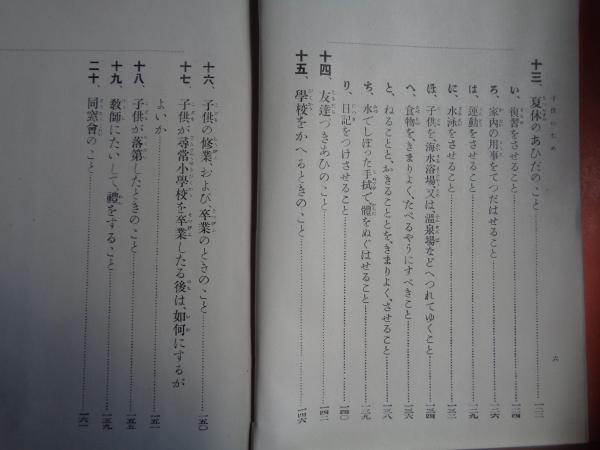 子供のため
六
十三、夏休のあひだのこと……一二三
い、復習をさせること……一二四
ろ、家内の用事をてつだはせること……一二六
は、運動をさせること……一二九
に、水泳をさせること……一三三
ほ、子供を、海水浴場又は溫泉場などへつれてゆくこと……一三四
へ、食物を、きまりよく、たべるやうにすべきこと……一三六
と、ねることと、おきることとを、きまりよく、させること……一三八
ち、水でしぼった手拭で、體をぬぐはせること……一三九
り、日記をつけさせること……一四〇
十四、友達づきあひのこと……一四二
十五、學校をかへるときのこと……一四六
十六、子供の修業および、卒業のときのこと……一五〇
十七、子供が尋常小學校を卒業したる後は、如何にするが
よいか……一五一
十八、子供が落第したときのこと……一五五
十九、敎師にたいして、禮をすること……一五九
二十、同窓會のこと……一六一